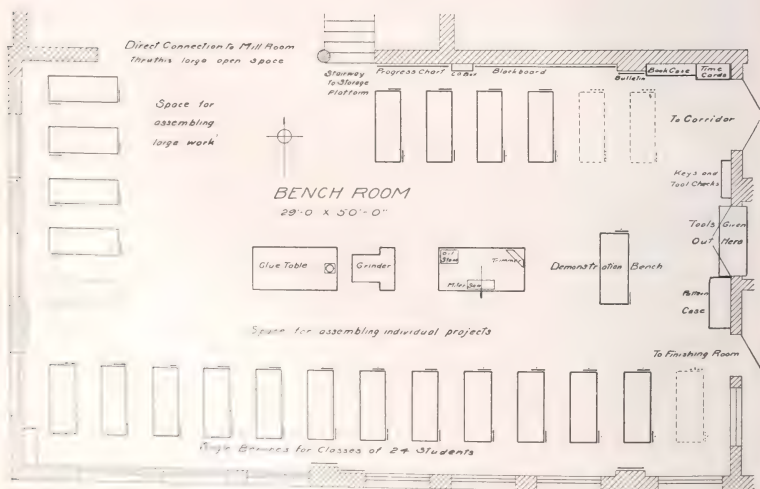 Direct Connection to Mill Room
thru this large open space
Stairway
to Storage
Platform
Progress Chart
Blackboard
Bulletin
Book Case
Time
Cards
Space for
assembling
large work
To Corridor
Keys and
Tool Checks
BENCH ROOM
29'-0 x 50'-0"
Tools Given
Out Here
Glue Table
Grinder
Oil
Stone
Trimmer
Miter Saw
Demonstration Bench
Pattern
Case
Space for assembling individual projects
To Finishing Room
Single Benches for Classes of 24 Students